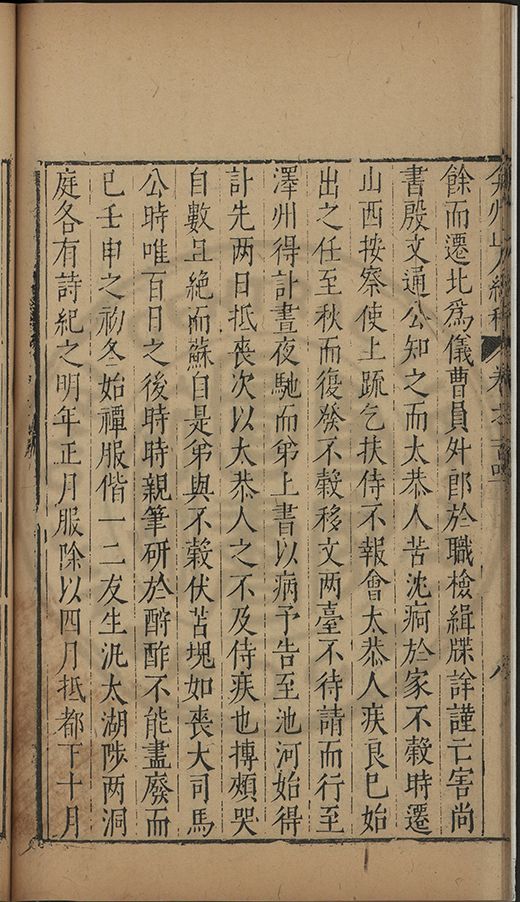 弇州山人續稿 卷之一百
八
餘而遷北為儀曹員外郎於職檢緝牒詳謹亡害尚
書殷文通公知之而太恭人苦沈痾於家不穀時遷
山西按察使上疏乞扶侍不報會太恭人疾良已始
出之任至秋而復發不穀移文两臺不待請而行至
澤州得訃晝夜馳而弟上書以病予告至池河始得
訃先两日抵喪次以太恭人之不及侍疾也摶頰哭
自數且絕而蘇自是弟與不穀伏苫塊如喪大司馬
公時唯百日之後時時親筆研於酧酢不能盡廢而
已壬申之初冬始禫服偕一二友生汎太湖陟两洞
庭各有詩紀之明年正月服除以四月抵都下十月